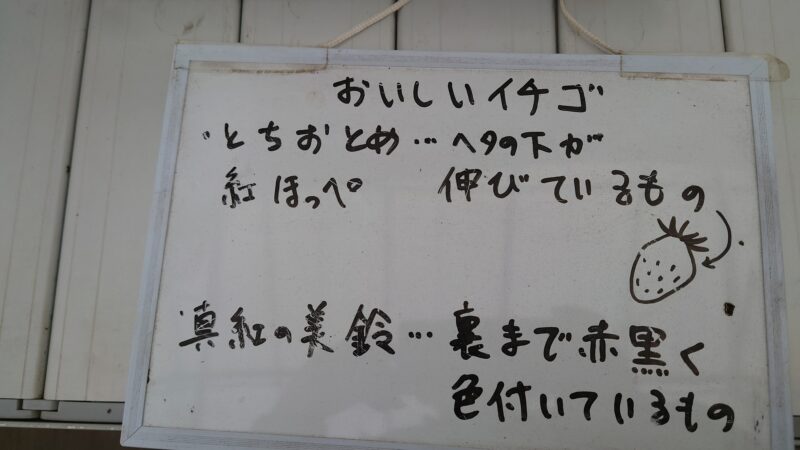 おいしいイチゴ
・とちおとめ…ヘタの下が
紅ほっぺ 伸びているもの
真紅の美鈴…裏まで赤黒く
色付いているもの